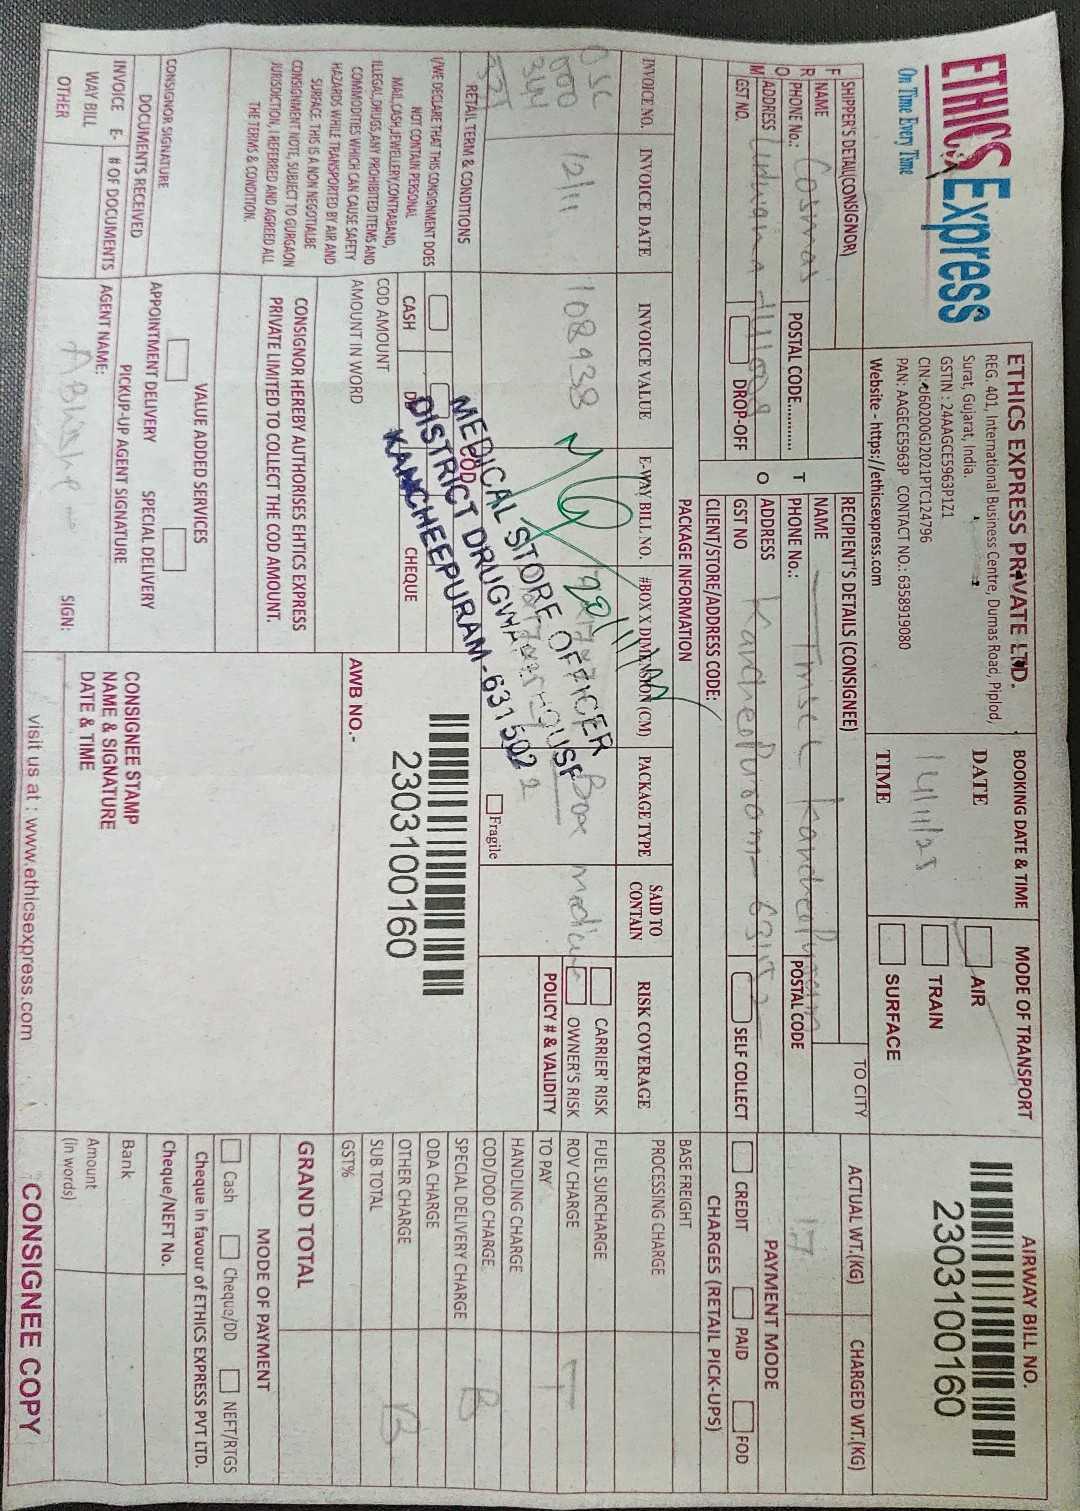 ETHICS Express
On Time Every Time
ETHICS EXPRESS PRIVATE LTD.
REG. 401, International Business Centre, Dumas Road, Piplod,
Surat, Gujarat, India.
GSTIN : 24AAGCE5963P1Z1
CIN: U60200GJ2021PTC124796
PAN: AAGECE5963P CONTACT NO.: 6358919080
Website - https://ethicsexpress.com
BOOKING DATE & TIME
DATE
14/11/25
TIME
MODE OF TRANSPORT
AIR
TRAIN
SURFACE
AIRWAY BILL NO.
2303100160
SHIPPER'S DETAIL(CONSIGNOR)
FROM
NAME Cosmas
PHONE No.:
POSTAL CODE............
ADDRESS Ludhiana 141008
GST NO.
DROP-OFF
RECIPIENT'S DETAILS (CONSIGNEE)
TO
NAME Tmscl Kancheepuram
PHONE No.:
POSTAL CODE
ADDRESS Kancheepuram -
GST NO
CLIENT/STORE/ADDRESS CODE:
SELF COLLECT
TO CITY
ACTUAL WT.(KG)
17
CHARGED WT.(KG)
PAYMENT MODE
CREDIT
PAID
FOD
PACKAGE INFORMATION
CHARGES (RETAIL PICK-UPS)
INVOICE NO.
INVOICE DATE
INVOICE VALUE
E-WAY BILL NO.
#BOX X DIMENSION (CM)
PACKAGE TYPE
SAID TO CONTAIN
RISK COVERAGE
OSC
000
344
525
12/11
108938
Box
CARRIER' RISK
OWNER'S RISK
POLICY # & VALIDITY
Fragile
20/11/
MEDICAL STORE OFFICER
DISTRICT DRUGWAREHOUSE
KANCHEEPURAM -631502
BASE FREIGHT
PROCESSING CHARGE
FUEL SURCHARGE
ROV CHARGE
TO PAY
HANDLING CHARGE
COD/DOD CHARGE
SPECIAL DELIVERY CHARGE
ODA CHARGE
OTHER CHARGE
SUB TOTAL
GST%
GRAND TOTAL
RETAIL TERM & CONDITIONS
I/WE DECLARE THAT THIS CONSIGNMENT DOES
NOT CONTAIN PERSONAL
MAIL,CASH,JEWELLERY,CONTRABAND,
ILLEGAL,DRUGS,ANY PROHIBITED ITEMS AND
COMMODITIES WHICH CAN CAUSE SAFETY
HAZARDS WHILE TRANSPORTED BY AIR AND
SURFACE. THIS IS A NON NEGOTIALBE
CONSIGNMENT NOTE, SUBJECT TO GURGAON
JURISDICTION, I REFERRED AND AGREED ALL
THE TERMS & CONDITION.
CASH
COD
CHEQUE
COD AMOUNT
AMOUNT IN WORD
CONSIGNOR HEREBY AUTHORISES EHTICS EXPRESS
PRIVATE LIMITED TO COLLECT THE COD AMOUNT.
AWB NO.-
2303100160
CONSIGNOR SIGNATURE
DOCUMENTS RECEIVED
INVOICE E-WAY BILL OTHER
# OF DOCUMENTS
VALUE ADDED SERVICES
APPOINTMENT DELIVERY
SPECIAL DELIVERY
PICKUP-UP AGENT SIGNATURE
AGENT NAME:
SIGN:
CONSIGNEE STAMP
NAME & SIGNATURE
DATE & TIME
MODE OF PAYMENT
Cash
Cheque/DD
NEFT/RTGS
Cheque in favour of ETHICS EXPRESS PVT LTD.
Cheque/NEFT No.
Bank
Amount
(in words)
visit us at : www.ethicsexpress.com
CONSIGNEE COPY